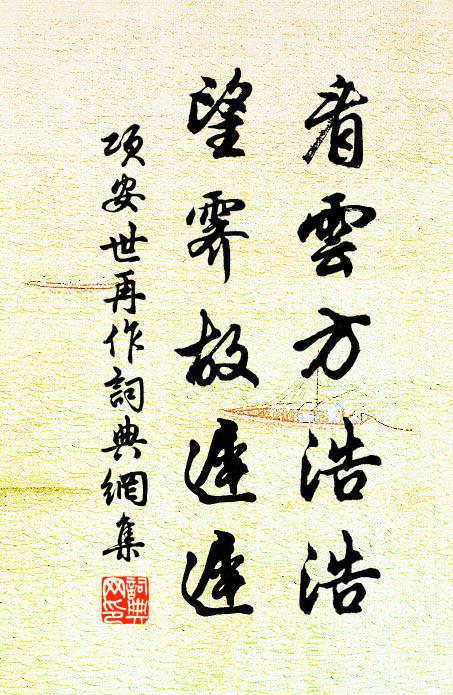 看雲方浩浩
望霽故遲遲
項安世再作詞典網集
詞典
网印